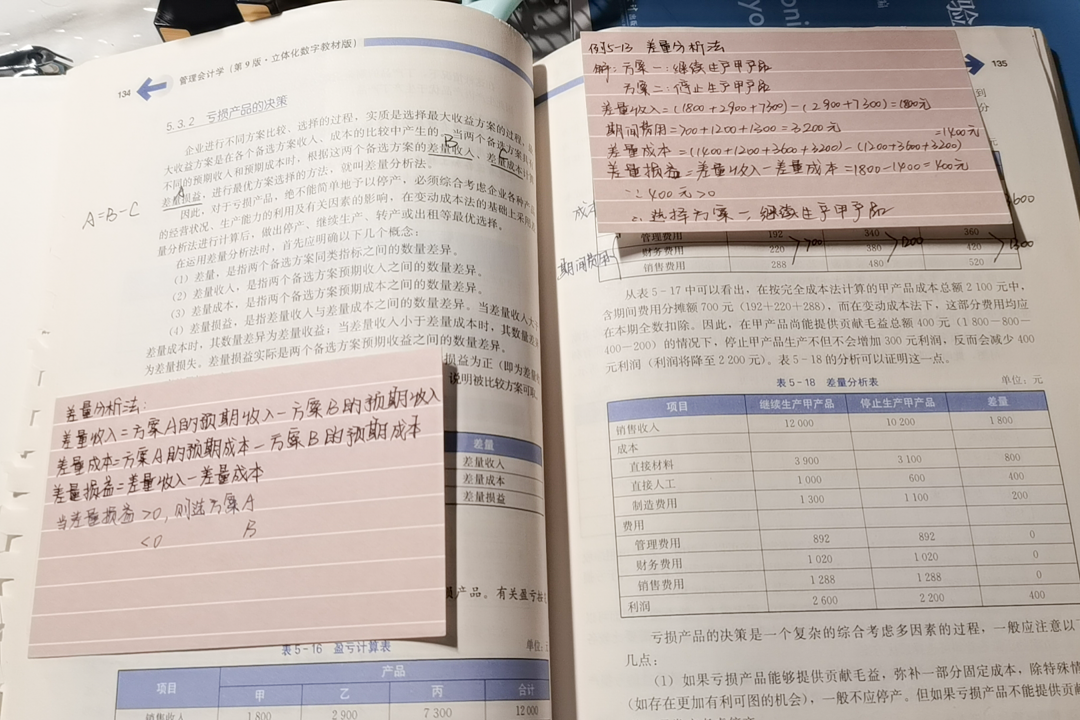 134
管理会计学(第9版·立体化数字教材版)
5.3.2 亏损产品的决策
企业进行不同方案比较、选择的过程，实质是选择最大收益方案的过程。
大收益方案是在各个备选方案收入、成本的比较中产生的。当两个备选方案
不同的预期收入和预期成本时，根据这两个备选方案的差量收入、差量成本
差量损益，进行最优方案选择的方法，就叫差量分析法。
因此，对于亏损产品，绝不能简单地予以停产，必须综合考虑企业各种产品
的经营状况、生产能力的利用及有关因素的影响，在变动成本法的基础上采用差
量分析法进行计算后，做出停产、继续生产、转产或出租等最优选择。
在运用差量分析法时，首先应明确以下几个概念：
(1) 差量，是指两个备选方案同类指标之间的数量差异。
(2) 差量收入，是指两个备选方案预期收入之间的数量差异。
(3) 差量成本，是指两个备选方案预期成本之间的数量差异。
(4) 差量损益，是指差量收入与差量成本之间的数量差异。当差量收入大于
差量成本时，其数量差异为差量收益；当差量收入小于差量成本时，其数量差
为差量损失。差量损益实际是两个备选方案预期收益之间的数量差异。
损益为正（即为差量
说明被比较方案可取
A=B-C
B
C
A
差量分析法：
差量收入=方案A的预期收入-方案B的预期收入
差量成本=方案A的预期成本-方案B的预期成本
差量损益=差量收入-差量成本
当差量损益>0,则选方案A
<0 B
差量
差量收入
差量成本
差量损益
产品。有关盈亏按
表5-16 盈亏计算表
单位：元
项目 产品
甲 乙 丙 合计
销售收入 1 800 2 900 7 300 12 000
135
例5-13 差量分析法
解：方案一：继续生产甲产品
方案二：停止生产甲产品
差量收入=(1800+2900+7300)-(2900+7300)=1800元
期间费用=700+1200+1300=3200元
差量成本=(1400+1200+3600+3200)-(1200+3600+3200) =1400元
差量损益=差量收入-差量成本=1800-1400=400元
∵400元>0
∴选择方案一,继续生产甲产品
成本
3600
期间费用
管理费用 192 340 360
财务费用 220 380 420
销售费用 288 480 520
700 1200 1300
从表5-17中可以看出，在按完全成本法计算的甲产品成本总额2 100元中，
含期间费用分摊额700元（192+220+288），而在变动成本法下，这部分费用均应
在本期全数扣除。因此，在甲产品尚能提供贡献毛益总额400元（1 800-800-
400-200）的情况下，停止甲产品生产不但不会增加300元利润，反而会减少400
元利润（利润将降至2 200元）。表5-18的分析可以证明这一点。
表5-18 差量分析表
单位：元
项目 继续生产甲产品 停止生产甲产品 差量
销售收入 12 000 10 200 1 800
成本
直接材料 3 900 3 100 800
直接人工 1 000 600 400
制造费用 1 300 1 100 200
费用
管理费用 892 892 0
财务费用 1 020 1 020 0
销售费用 1 288 1 288 0
利润 2 600 2 200 400
亏损产品的决策是一个复杂的综合考虑多因素的过程，一般应注意以下
几点：
(1) 如果亏损产品能够提供贡献毛益，弥补一部分固定成本，除特殊情
(如存在更加有利可图的机会)，一般不应停产。但如果亏损产品不能提供贡献